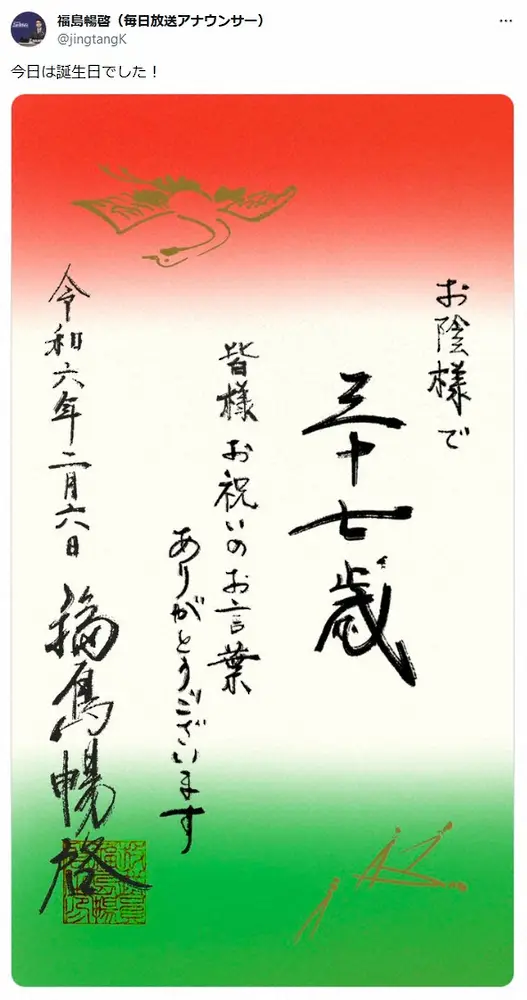 福島暢啓（毎日放送アナウンサー）
@jingtangK
今日は誕生日でした！
お陰様で
三十七歳
皆様お祝いのお言葉
ありがとうございます
令和六年二月六日 福島暢啓